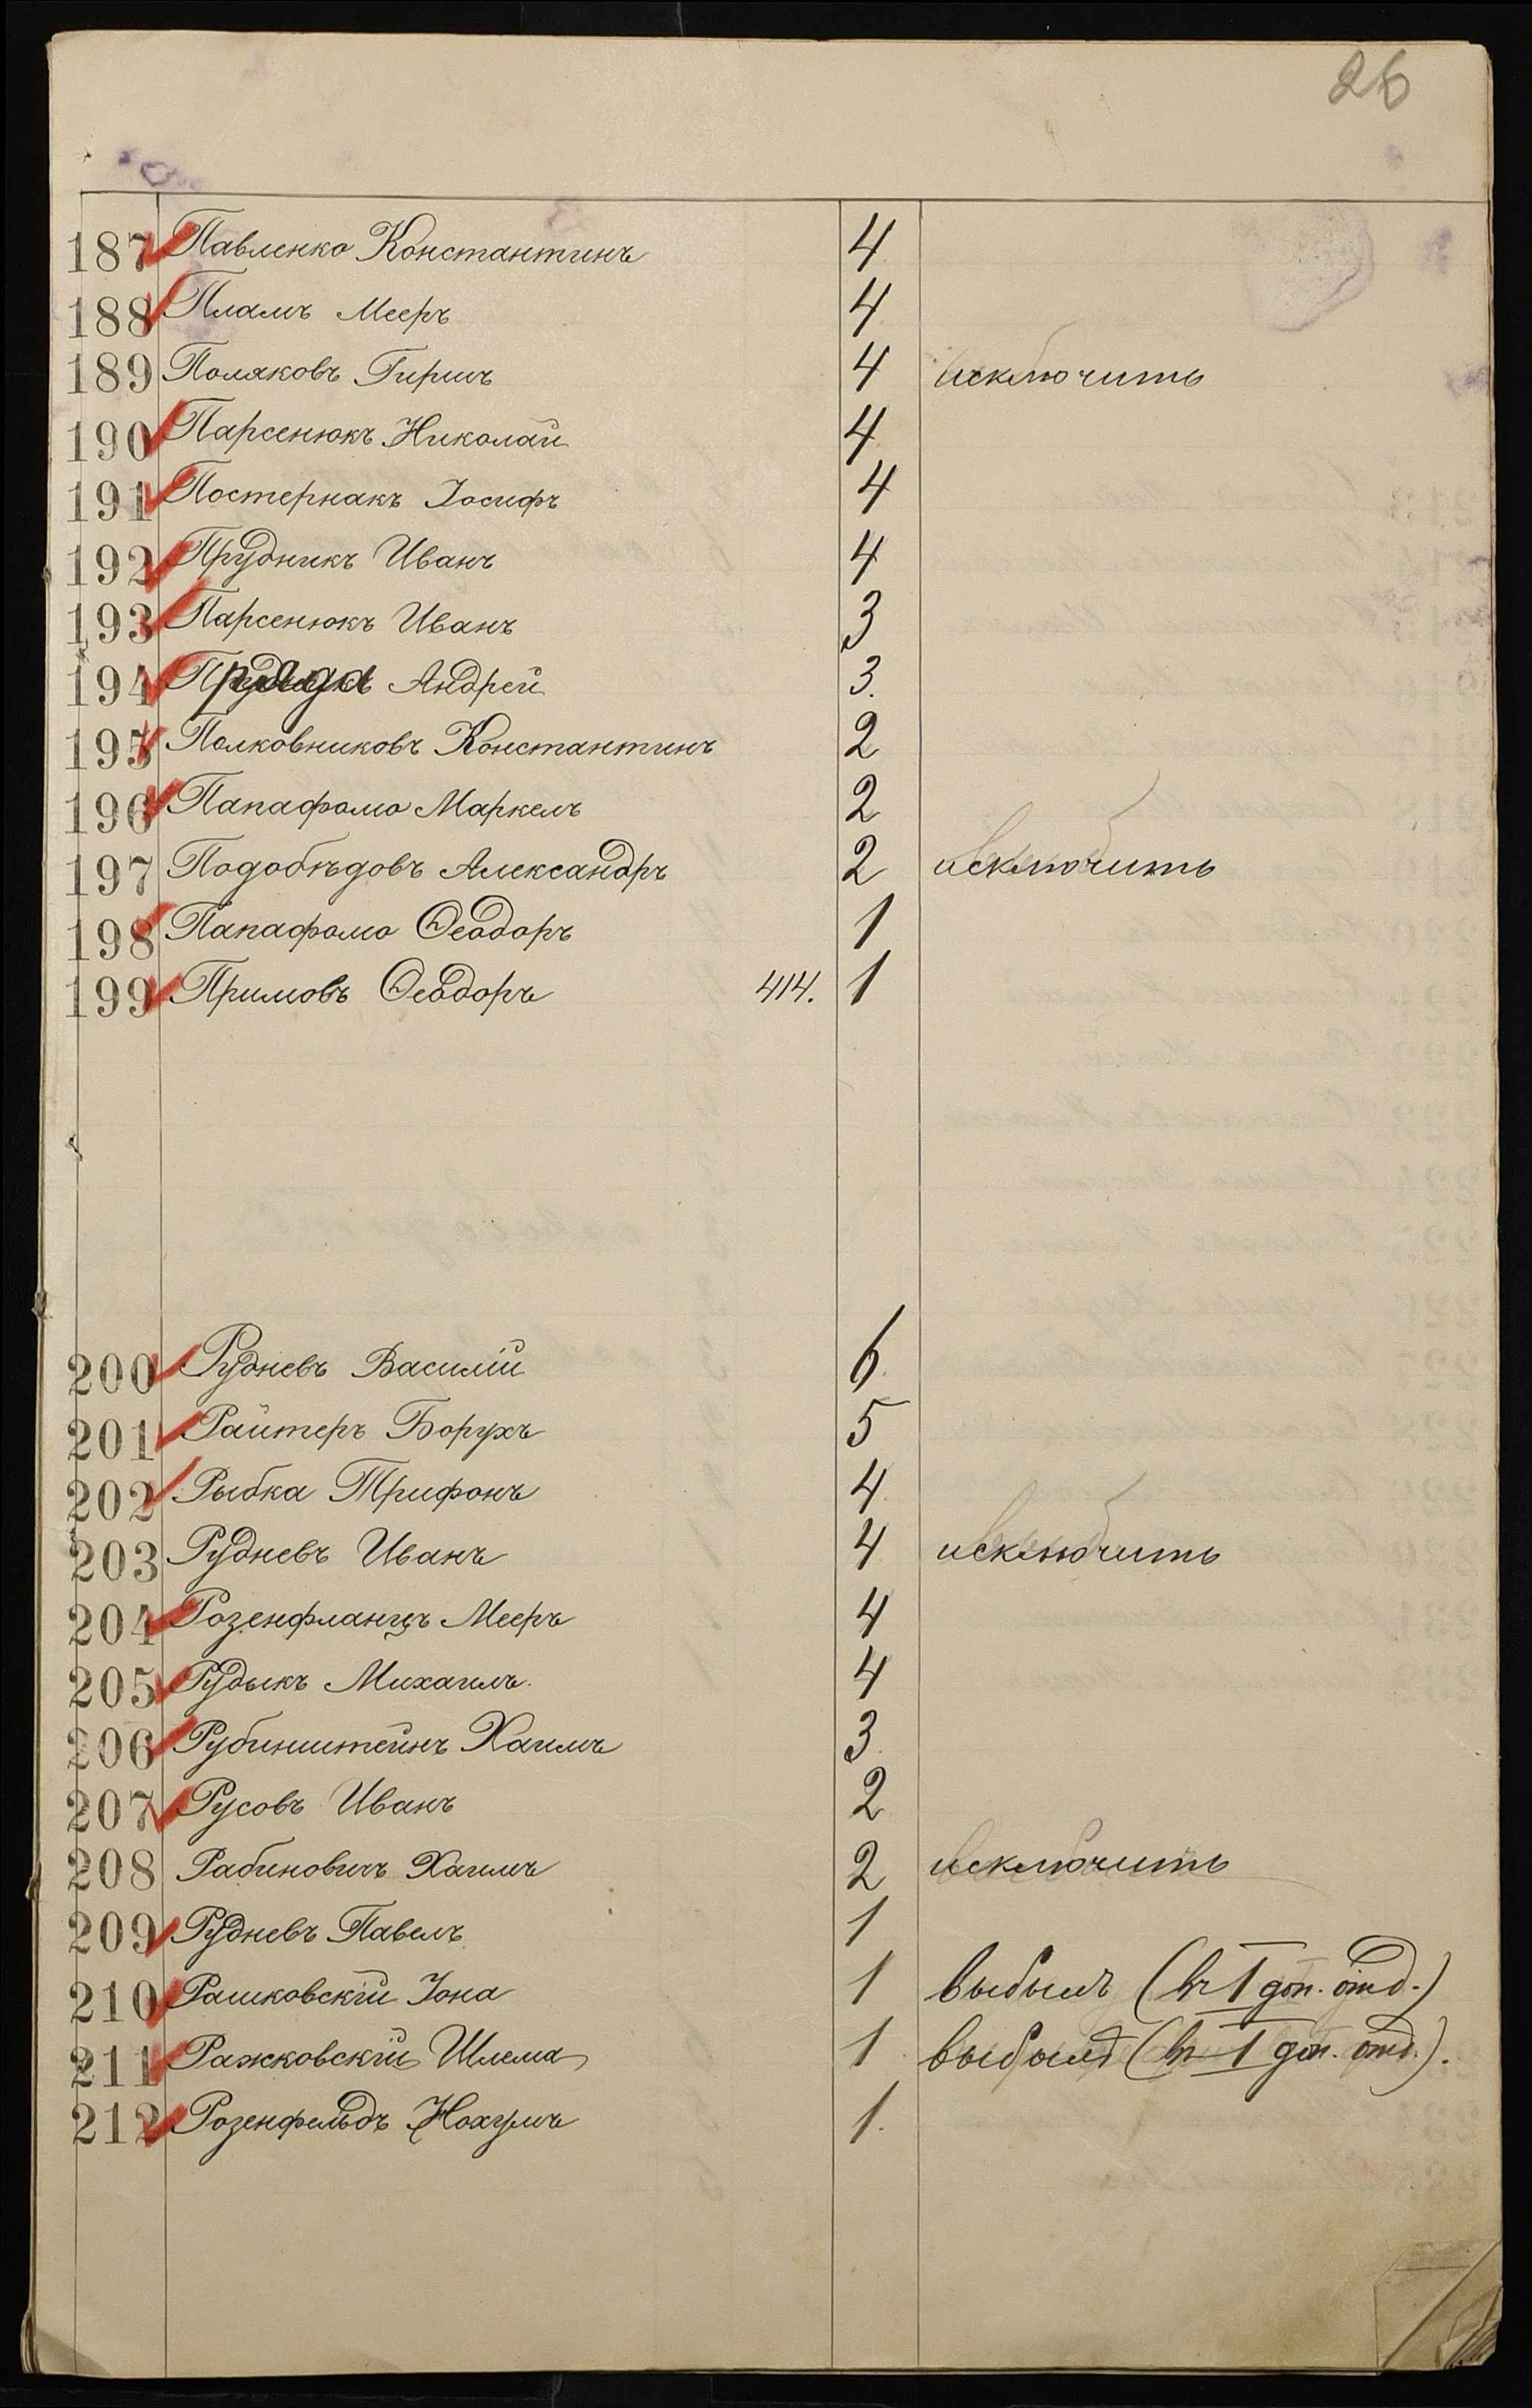 26
187 Павленко Константинъ 4
188 Пламъ Мееръ 4
189 Поляковъ Гиршъ 4 исключить
190 Парсенюкъ Николай 4
191 Постернакъ Іосифъ 4
192 Прудникъ Иванъ 4
193 Парсенюкъ Иванъ 3
194 Андрей 3.
195 Полковниковъ Константинъ 2
196 Папафомо Маркелъ 2
197 Подобѣдовъ Александръ 2 исключить
198 Папафомо Ѳеодоръ 1
199 Примовъ Ѳеодоръ 414. 1
200 Рудневъ Василій 6.
201 Райтеръ Борухъ 5
202 Рыбка Трифонъ 4
203 Рудневъ Иванъ 4 исключить
204 Розенфланцъ Мееръ 4
205 Рудыкъ Михаилъ. 4
206 Рубинштейнъ Хаимъ 3
207 Русовъ Иванъ 2
208 Рабиновичъ Хаимъ 2 исключить
209 Рудневъ Павелъ 1
210 Рашковскій Іона 1 выбылъ (въ 1 доп. отд.)
211 Ражковскій Шлема 1 выбылъ (въ 1 доп. отд.).
212 Розенфельдъ Нохумъ 1.